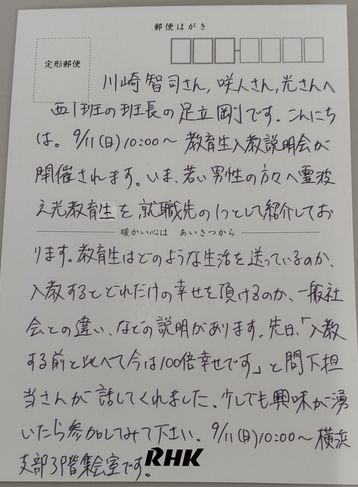 郵便はがき
定形郵便
川崎智司さん，咲人さん，光さんへ
西1班の班長の足立剛です。こんにち
は。9/11(日)10:00～ 教育生入教説明会が
開催されます。いま、若い男性の方々へ霊波
之光教育生を就職先の1つとして紹介してお
暖かい心は あいさつから
ります。教育生はどのような生活を送っているのか、
入教するとどれだけの幸せを頂けるのか、一般社
会との違い、などの説明があります。先日、「入教
する前と比べて今は100倍幸せです」と問下担
当さんが話してくれました。少しでも興味が湧
いたら参加してみて下さい。9/11(日)10:00～横浜
支部3階集会室です。
RHK